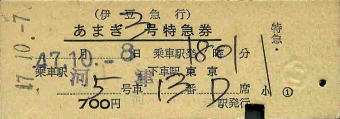 (伊豆急行)
あまぎ3号特急券
47.10.-8
月 日 乗車駅発1801分
乗車駅 河津 下車駅 東京
5号車 13番D席 小 ①
700円 駅発行
特急
47.10.-7